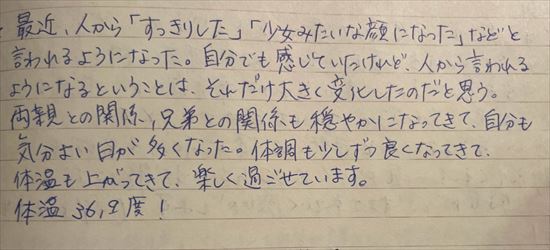 最近、人から「すっきりした」「少女みたいな顔になった」などと
言われるようになった。自分でも感じていたけれど、人から言われる
ようになるということは、それだけ大きく変化したのだと思う。
両親との関係、兄弟との関係も穏やかになってきて、自分も
気分よい日が多くなった。体調も少しずつ良くなってきて、
体温も上がってきて、楽しく過ごせています。
体温 36,2度！